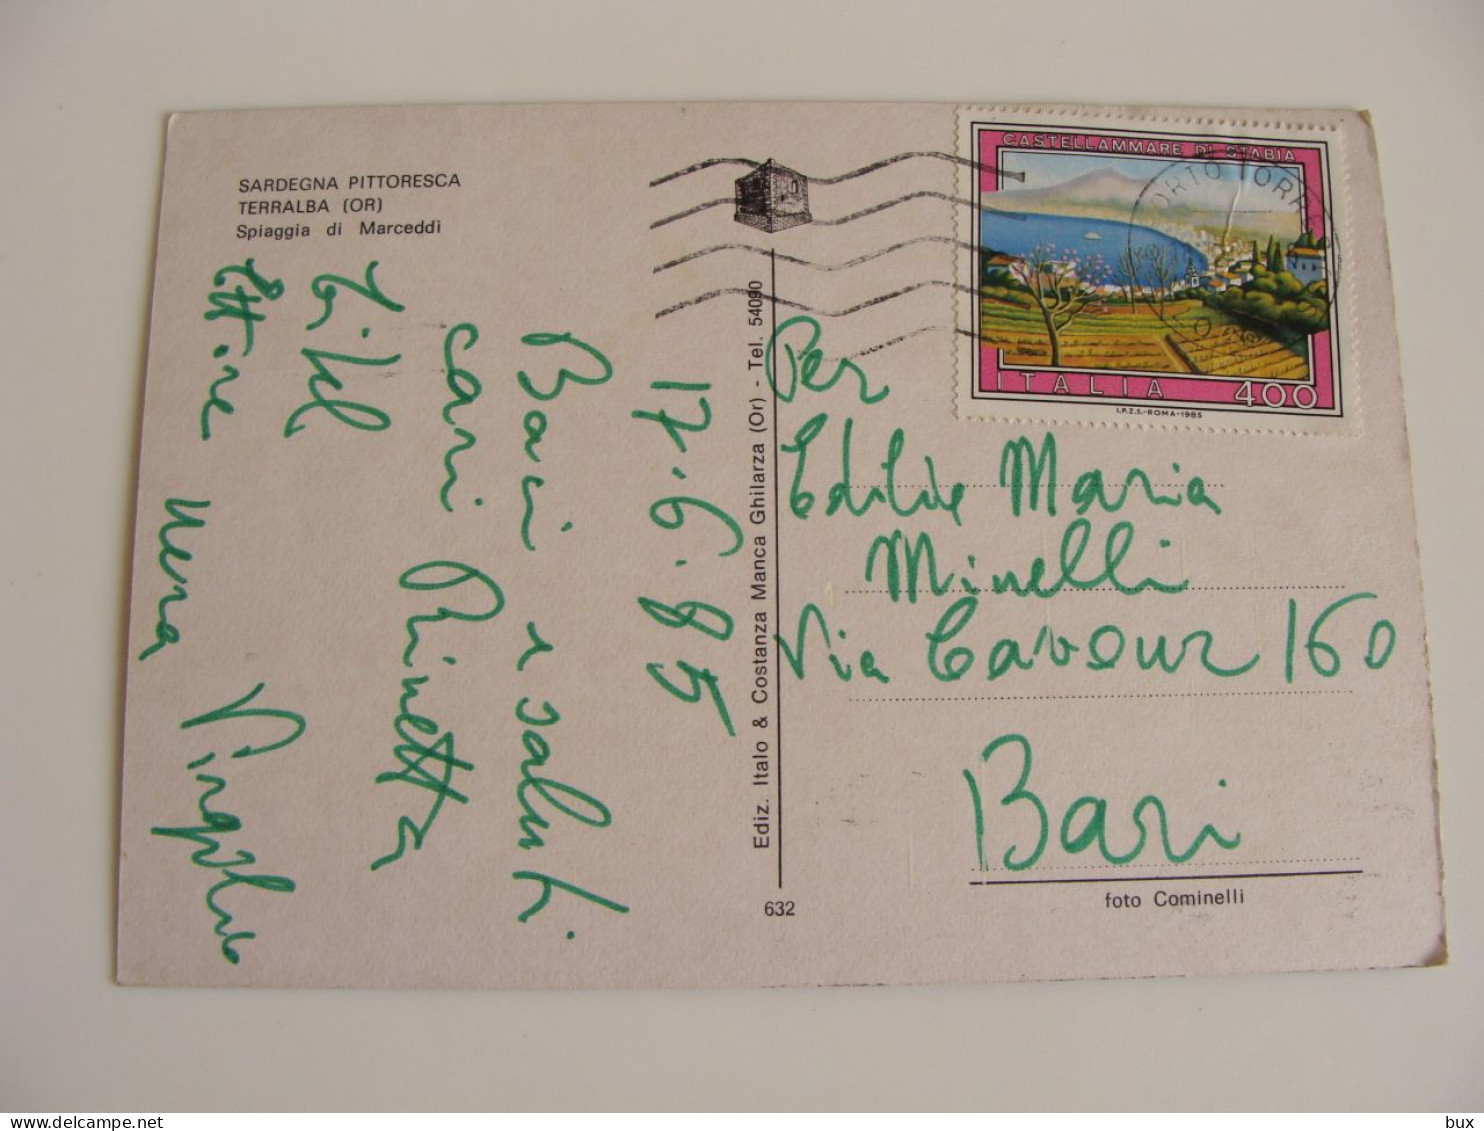 SARDEGNA PITTORESCA
TERRALBA (OR)
Spiaggia di Marceddì
17.6.85
Baci e saluti
cari Rinetta
Ettore Nera Virgilio
Ediz. Italo & Costanza Manca Ghilarza (Or) - Tel. 54090
632
CASTELLAMMARE DI STABIA
ITALIA 400
I.P.Z.S.-ROMA-1985
PORTO TORRES
Per
Edilie Maria
Minelli
Via Cavour 160
Bari
foto Cominelli
bux